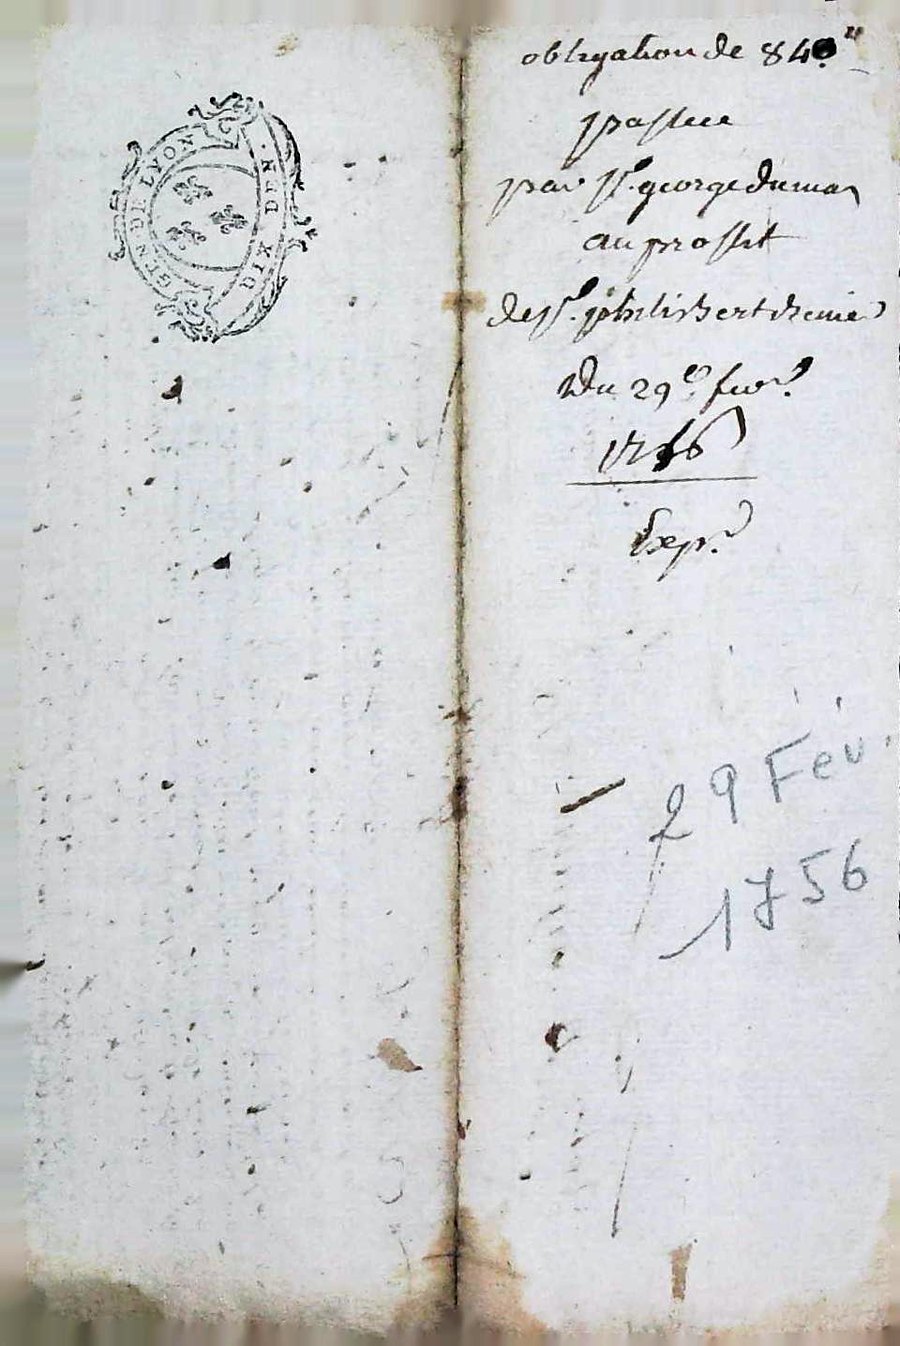 GEN. DE LYON
DIX DEN.
obligation de 840.ᵗᵗ
passee
par Sʳ. george dumas
au proffit
de Sʳ. philisbert
Du 29ᵉ. fevr.
1756
Exp.
29 Fév.
1756